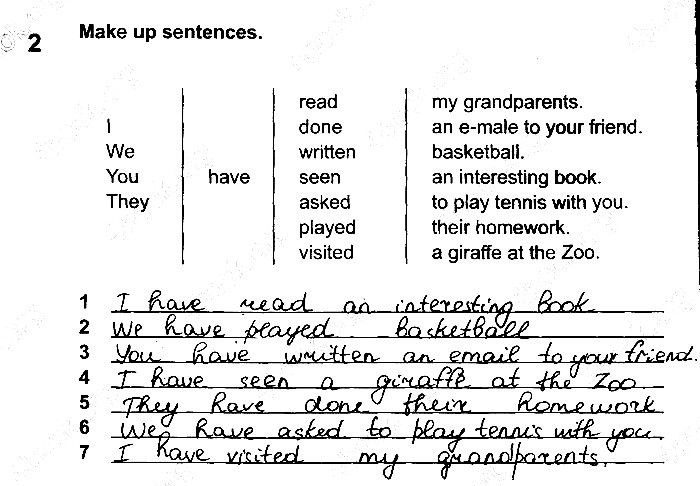 2 Make up sentences.
read my grandparents.
I done an e-male to your friend.
We written basketball.
You have seen an interesting book.
They asked to play tennis with you.
played their homework.
visited a giraffe at the Zoo.
1 I have read an interesting book
2 We have played basketball
3 You have written an email to your friend.
4 I have seen a giraffe at the Zoo
5 They have done their homework
6 We have asked to play tennis with you.
7 I have visited my grandparents.